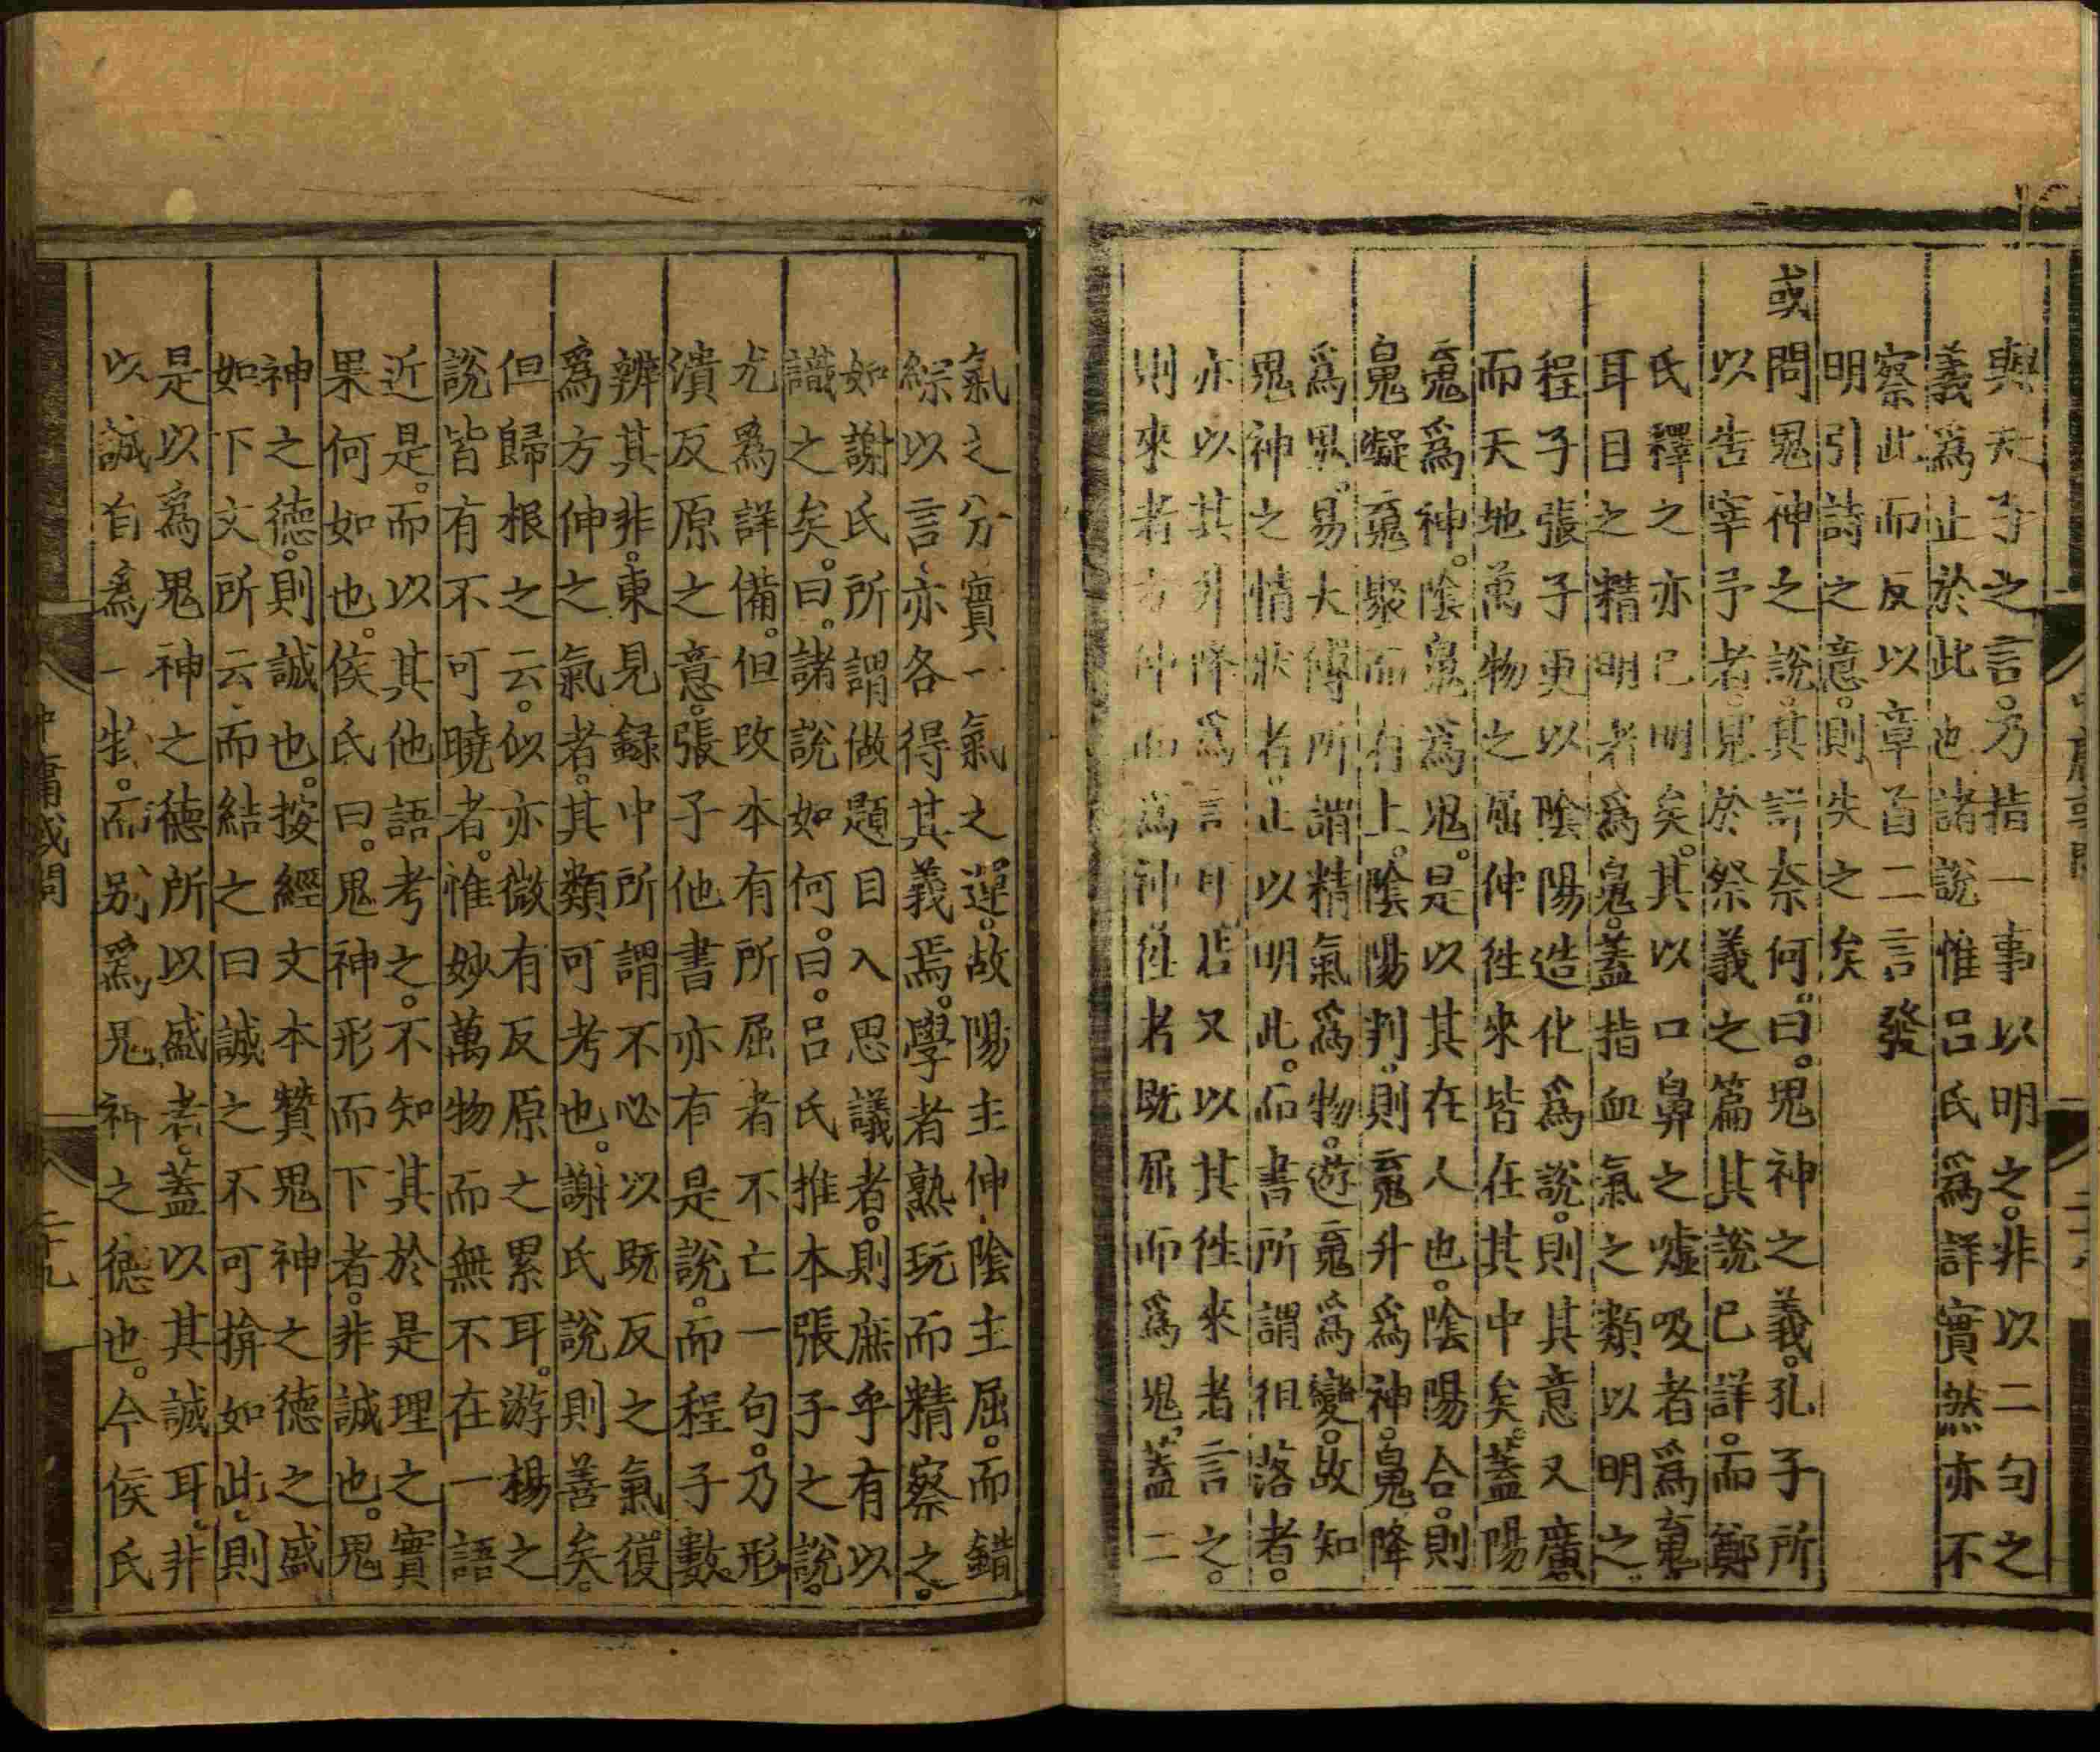 與天子之言。乃指一事以明之。非以二句之
義爲止於此也諸說惟呂氏爲詳實然亦不
察此而反以章首二言發
明引詩之意。則失之矣
或問鬼神之說。其詳奈何。曰。鬼神之義。孔子所
以告宰予者。見於祭義之篇其說已詳。而鄭
氏釋之亦已明矣。其以口鼻之嘘吸者爲䰟。
耳目之精明者爲鬽。蓋指血氣之類以明之。
程子張子更以陰陽造化爲說。則其意又廣。
而天地萬物之屈伸徃來皆在其中矣。蓋陽
䰟爲神。陰魄爲鬼。是以其在人也。陰陽合。則
魄凝䰟聚而有生。陰陽判。則䰟升爲神。魄降
爲鬼。易大傳所謂精氣爲物。遊䰟爲變。故知
鬼神之情狀者。正以明此。而書所謂徂落者。
亦以其升降爲言耳若又以其徃來者言之。
則來者方伸而爲神徃者既屈而爲鬼。蓋二
氣之分實一氣之運。故陽主伸。陰主屈。而錯
綜以言。亦各得其義焉。學者熟玩而精察之。
如謝氏所謂做題目入思議者。則庶乎有以
識之矣。曰。諸說如何。曰。呂氏推本張子之說。
尤爲詳備。但改本有所屈者不亡一句。乃形
潰反原之意。張子他書亦有是說。而程子數
辨其非。東見録中所謂不必以既反之氣復
爲方伸之氣者。其類可考也。謝氏說則善矣。
但歸根之云。似亦微有反原之累耳。游楊之
說皆有不可曉者。惟妙萬物而無不在一語
近是。而以其他語考之。不知其於是理之實
果何如也。侯氏曰。鬼神形而下者。非誠也。鬼
神之德。則誠也。按經文本贊鬼神之德之盛
如下文所云。而結之曰誠之不可揜如此。則
是以爲鬼神之德所以盛者。蓋以其誠耳。非
以誠自爲一物。而别爲鬼神之德也。今侯氏
中庸或問
二十九